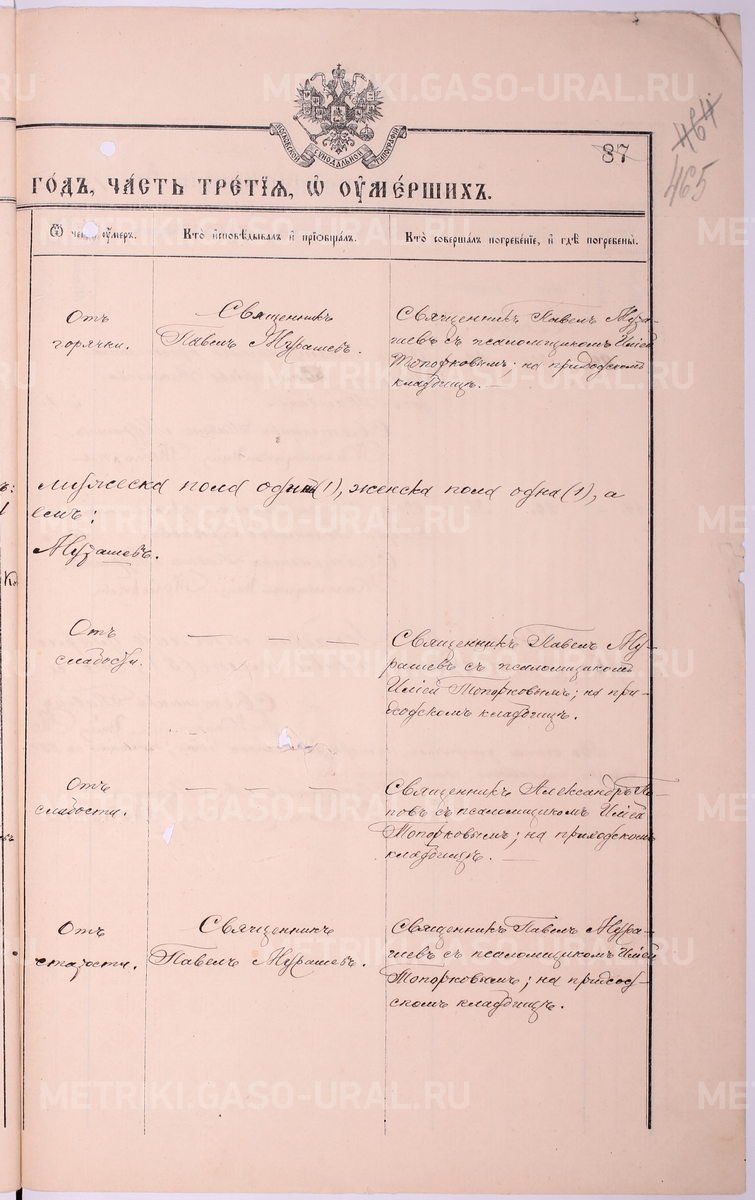 METRIKI.GASO-URAL.RU
МОСКОВСКОЙ СѴНОДАЛЬНОЙ ТИПОГРАФІИ
87
464
465
ГО́ДЪ, ЧА́СТЬ ТРЕ́ТЇѦ, Ѡ҆ ОУ҆МЕ́РШИХЪ.
Ѿ чего̀ ᲂу҆́меръ.
Кто̀ и҆сповѣ́дывалъ и҆ прїѡбща́лъ.
Кто̀ соверша́лъ погребе́нїе, и҆ гдѣ̀ погребены̀.
Отъ
горячки.
Священникъ
Павелъ Мурашевъ.
Священникъ Павелъ Мура-
шевъ съ псаломщикомъ Иліей
Топорковымъ; на приходскомъ
кладбищѣ.
мужеска пола одинъ (1), женска пола одна (1), а
емъ:
Мурашевъ.
Отъ
слабости.
Священникъ Павелъ Му-
рашевъ съ псаломщикомъ
Иліей Топорковымъ; на при-
ходскомъ кладбищѣ.
Отъ
слабости.
Священникъ Александръ По-
повъ съ псаломщикомъ Иліей
Топорковымъ; на приходскомъ
кладбищѣ.
Отъ
старости.
Священникъ
Павелъ Мурашевъ.
Священникъ Павелъ Мура-
шевъ съ псаломщикомъ Иліей
Топорковымъ; на приход-
скомъ кладбищѣ.
METRIKI.GASO-URAL.RU